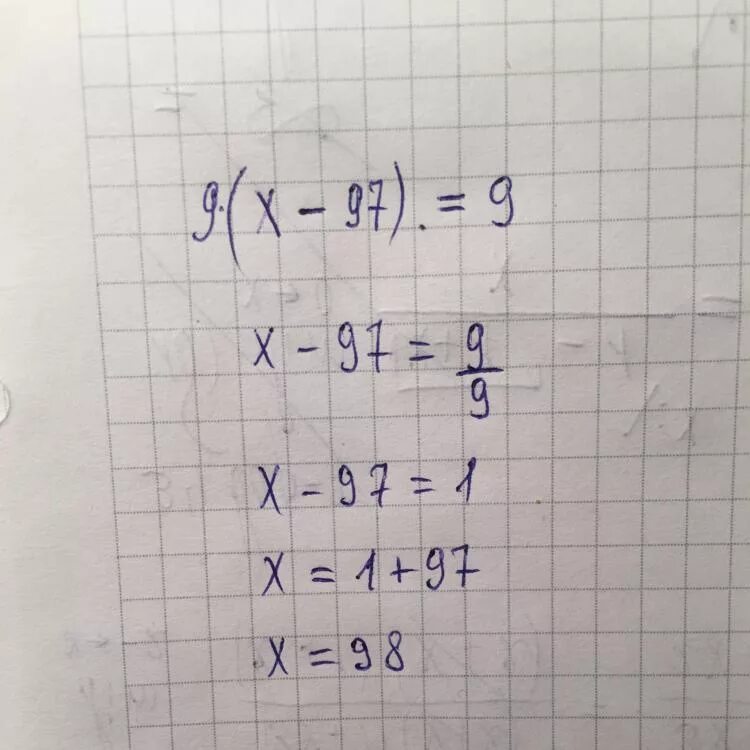 9·(x - 97). = 9
x - 97 = 9/9
x - 97 = 1
x = 1 + 97
x = 98